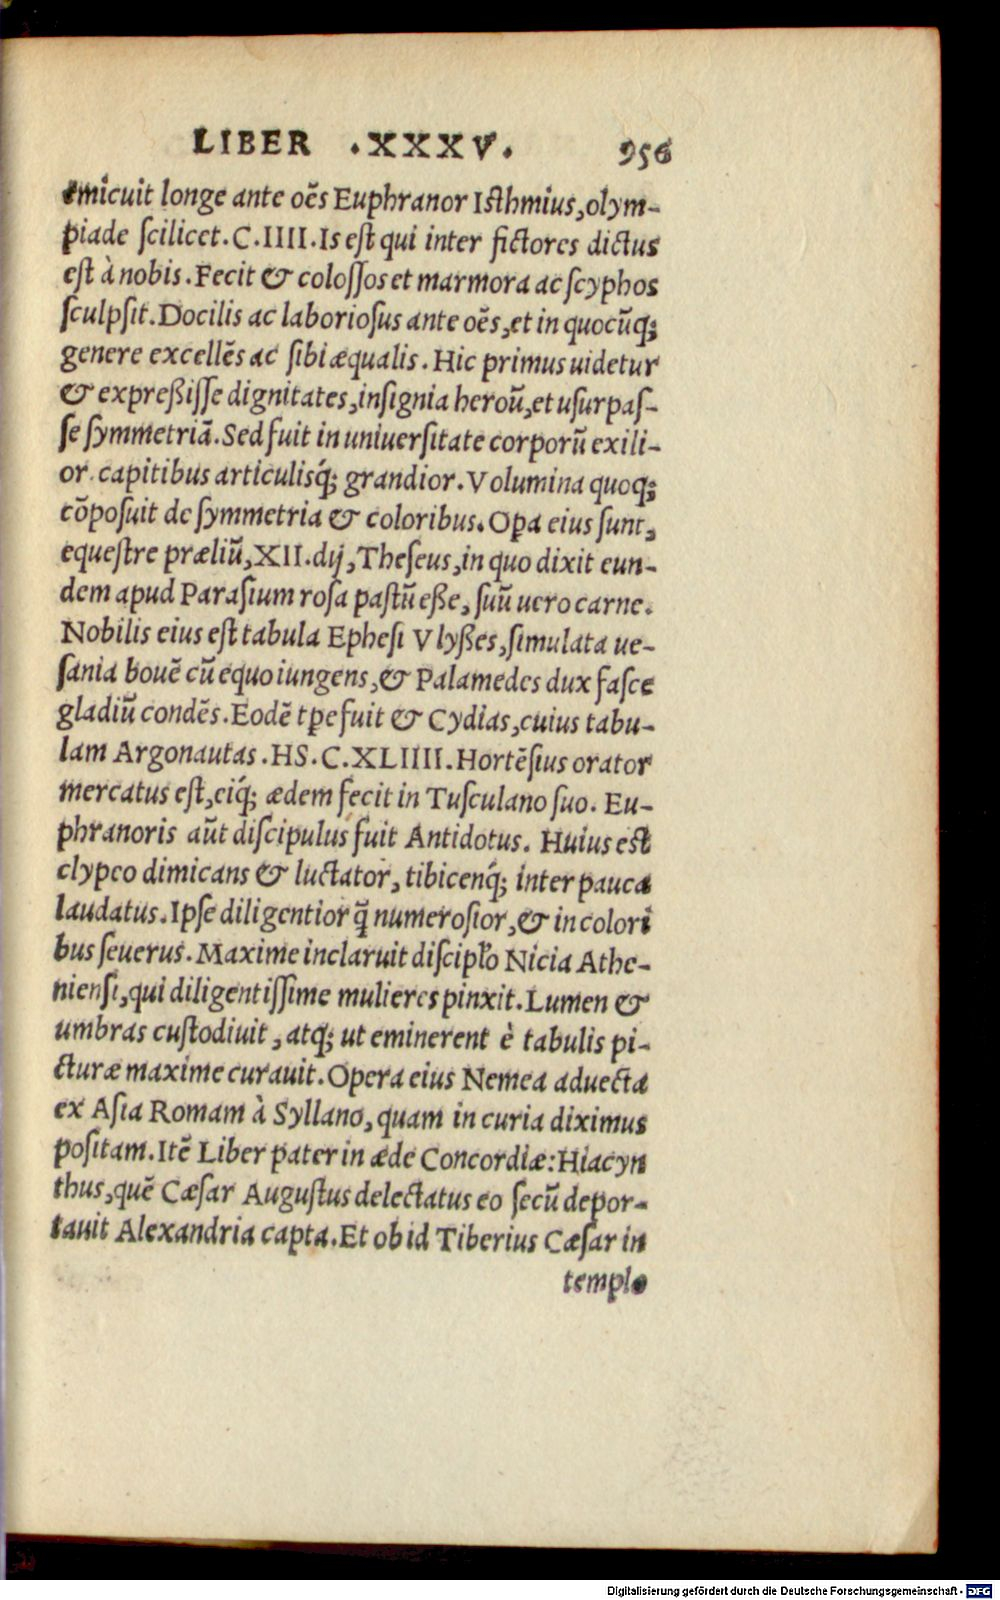 LIBER .XXXV. 956
emicuit longe ante oẽs Euphranor Isthmius, olym-
piade ſcilicet. C. IIII. Is eſt qui inter fictores dictus
eſt à nobis. Fecit & coloſſos et marmora ac ſcyphos
ſculpſit. Docilis ac laborioſus ante oẽs, et in quocũq;
genere excellẽs ac ſibi æqualis. Hic primus uidetur
& expreßiſſe dignitates, inſignia heroũ, et uſurpaſ-
ſe ſymmetriã. Sed fuit in uniuerſitate corporũ exili-
or. capitibus articulisq́; grandior. Volumina quoq;
cõpoſuit de ſymmetria & coloribus. Oꝑa eius ſunt,
equeſtre præliũ, XII. dij, Theſeus, in quo dixit eun-
dem apud Paraſium roſa paſtũ eße, ſuũ uero carne.
Nobilis eius eſt tabula Epheſi Vlyßes, ſimulata ue-
ſania bouẽ cũ equo iungens, & Palamedes dux faſce
gladiũ condẽs. Eodẽ tꝑe fuit & Cydias, cuius tabu-
lam Argonautas. HS. C. XLIIII. Hortẽſius orator
mercatus eſt, eiq́; ædem fecit in Tuſculano ſuo. Eu-
phranoris aũt diſcipulus fuit Antidotus. Huius eſt
clypeo dimicans & luctator, tibicenq́; inter pauca
laudatus. Ipſe diligentior q̃ numeroſior, & in colori
bus ſeuerus. Maxime inclaruit diſcipło Nicia Athe-
nienſi, qui diligentiſſime mulieres pinxit. Lumen &
umbras cuſtodiuit, atq; ut eminerent è tabulis pi-
cturæ maxime curauit. Opera eius Nemea aduecta
ex Aſia Romam à Syllano, quam in curia diximus
poſitam. Itẽ Liber pater in æde Concordiæ: Hiacyn
thus, quẽ Cæſar Auguſtus delectatus eo ſecũ depor-
tauit Alexandria capta. Et ob id Tiberius Cæſar in
templo
Digitalisierung gefördert durch die Deutsche Forschungsgemeinschaft - DFG